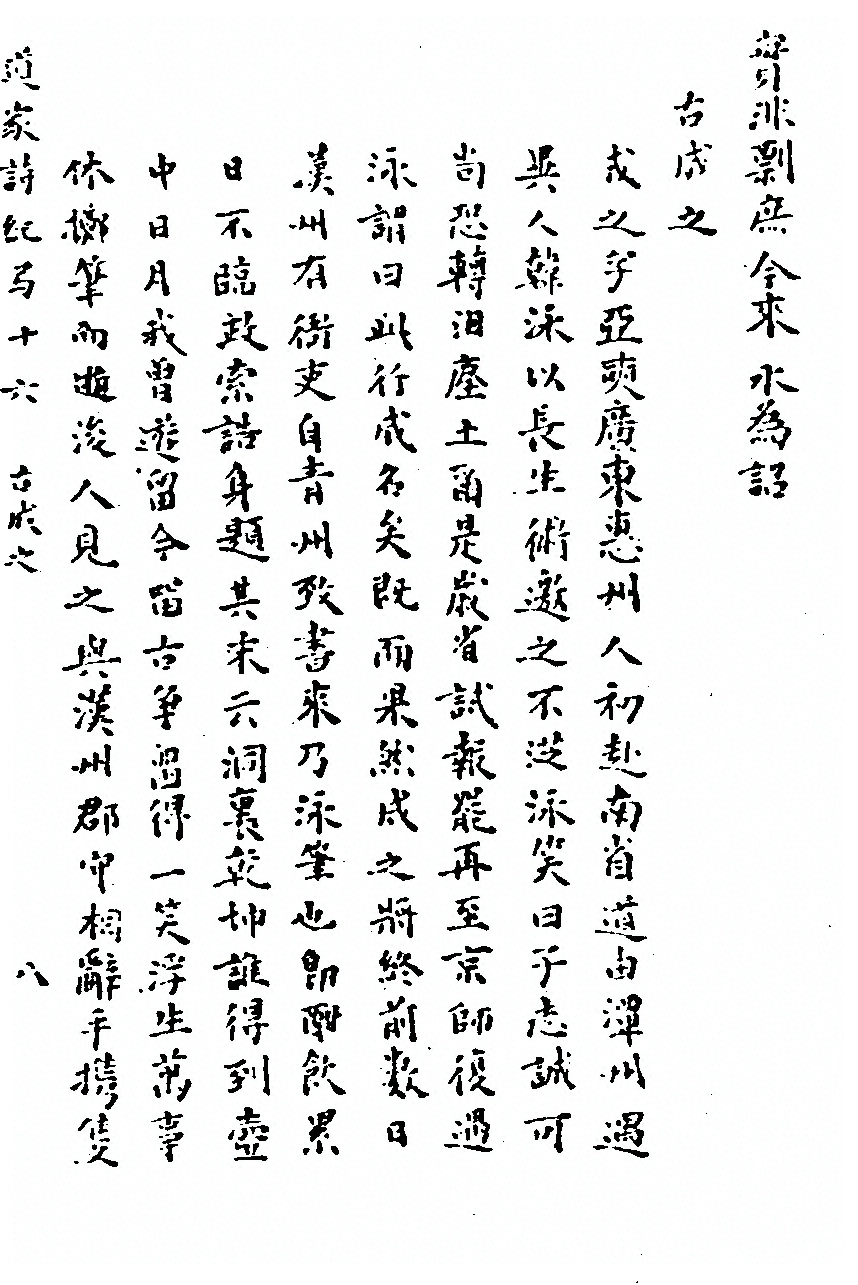 實非剽庶今來水為詔
古成之
成之字亞奭廣東惠州人初赴南省道由潭州遇
異人韓泳以長生術邀之不從泳笑曰子志誠可
尚恐轉汨塵土爾是歲省試報罷再至京師復過
泳謂曰此行成名矣既而果然成之將終前數日
漢州有衙吏自青州致書來乃泳筆也即酣飲累
日不臨政索誥身題其末云洞裏乾坤誰得到壺
中日月我曾遊留今留古爭留得一笑浮生萬事
休擲筆而逝後人見之與漢州郡守相辭手攜隻
道家詩紀弓十六 古成之 八